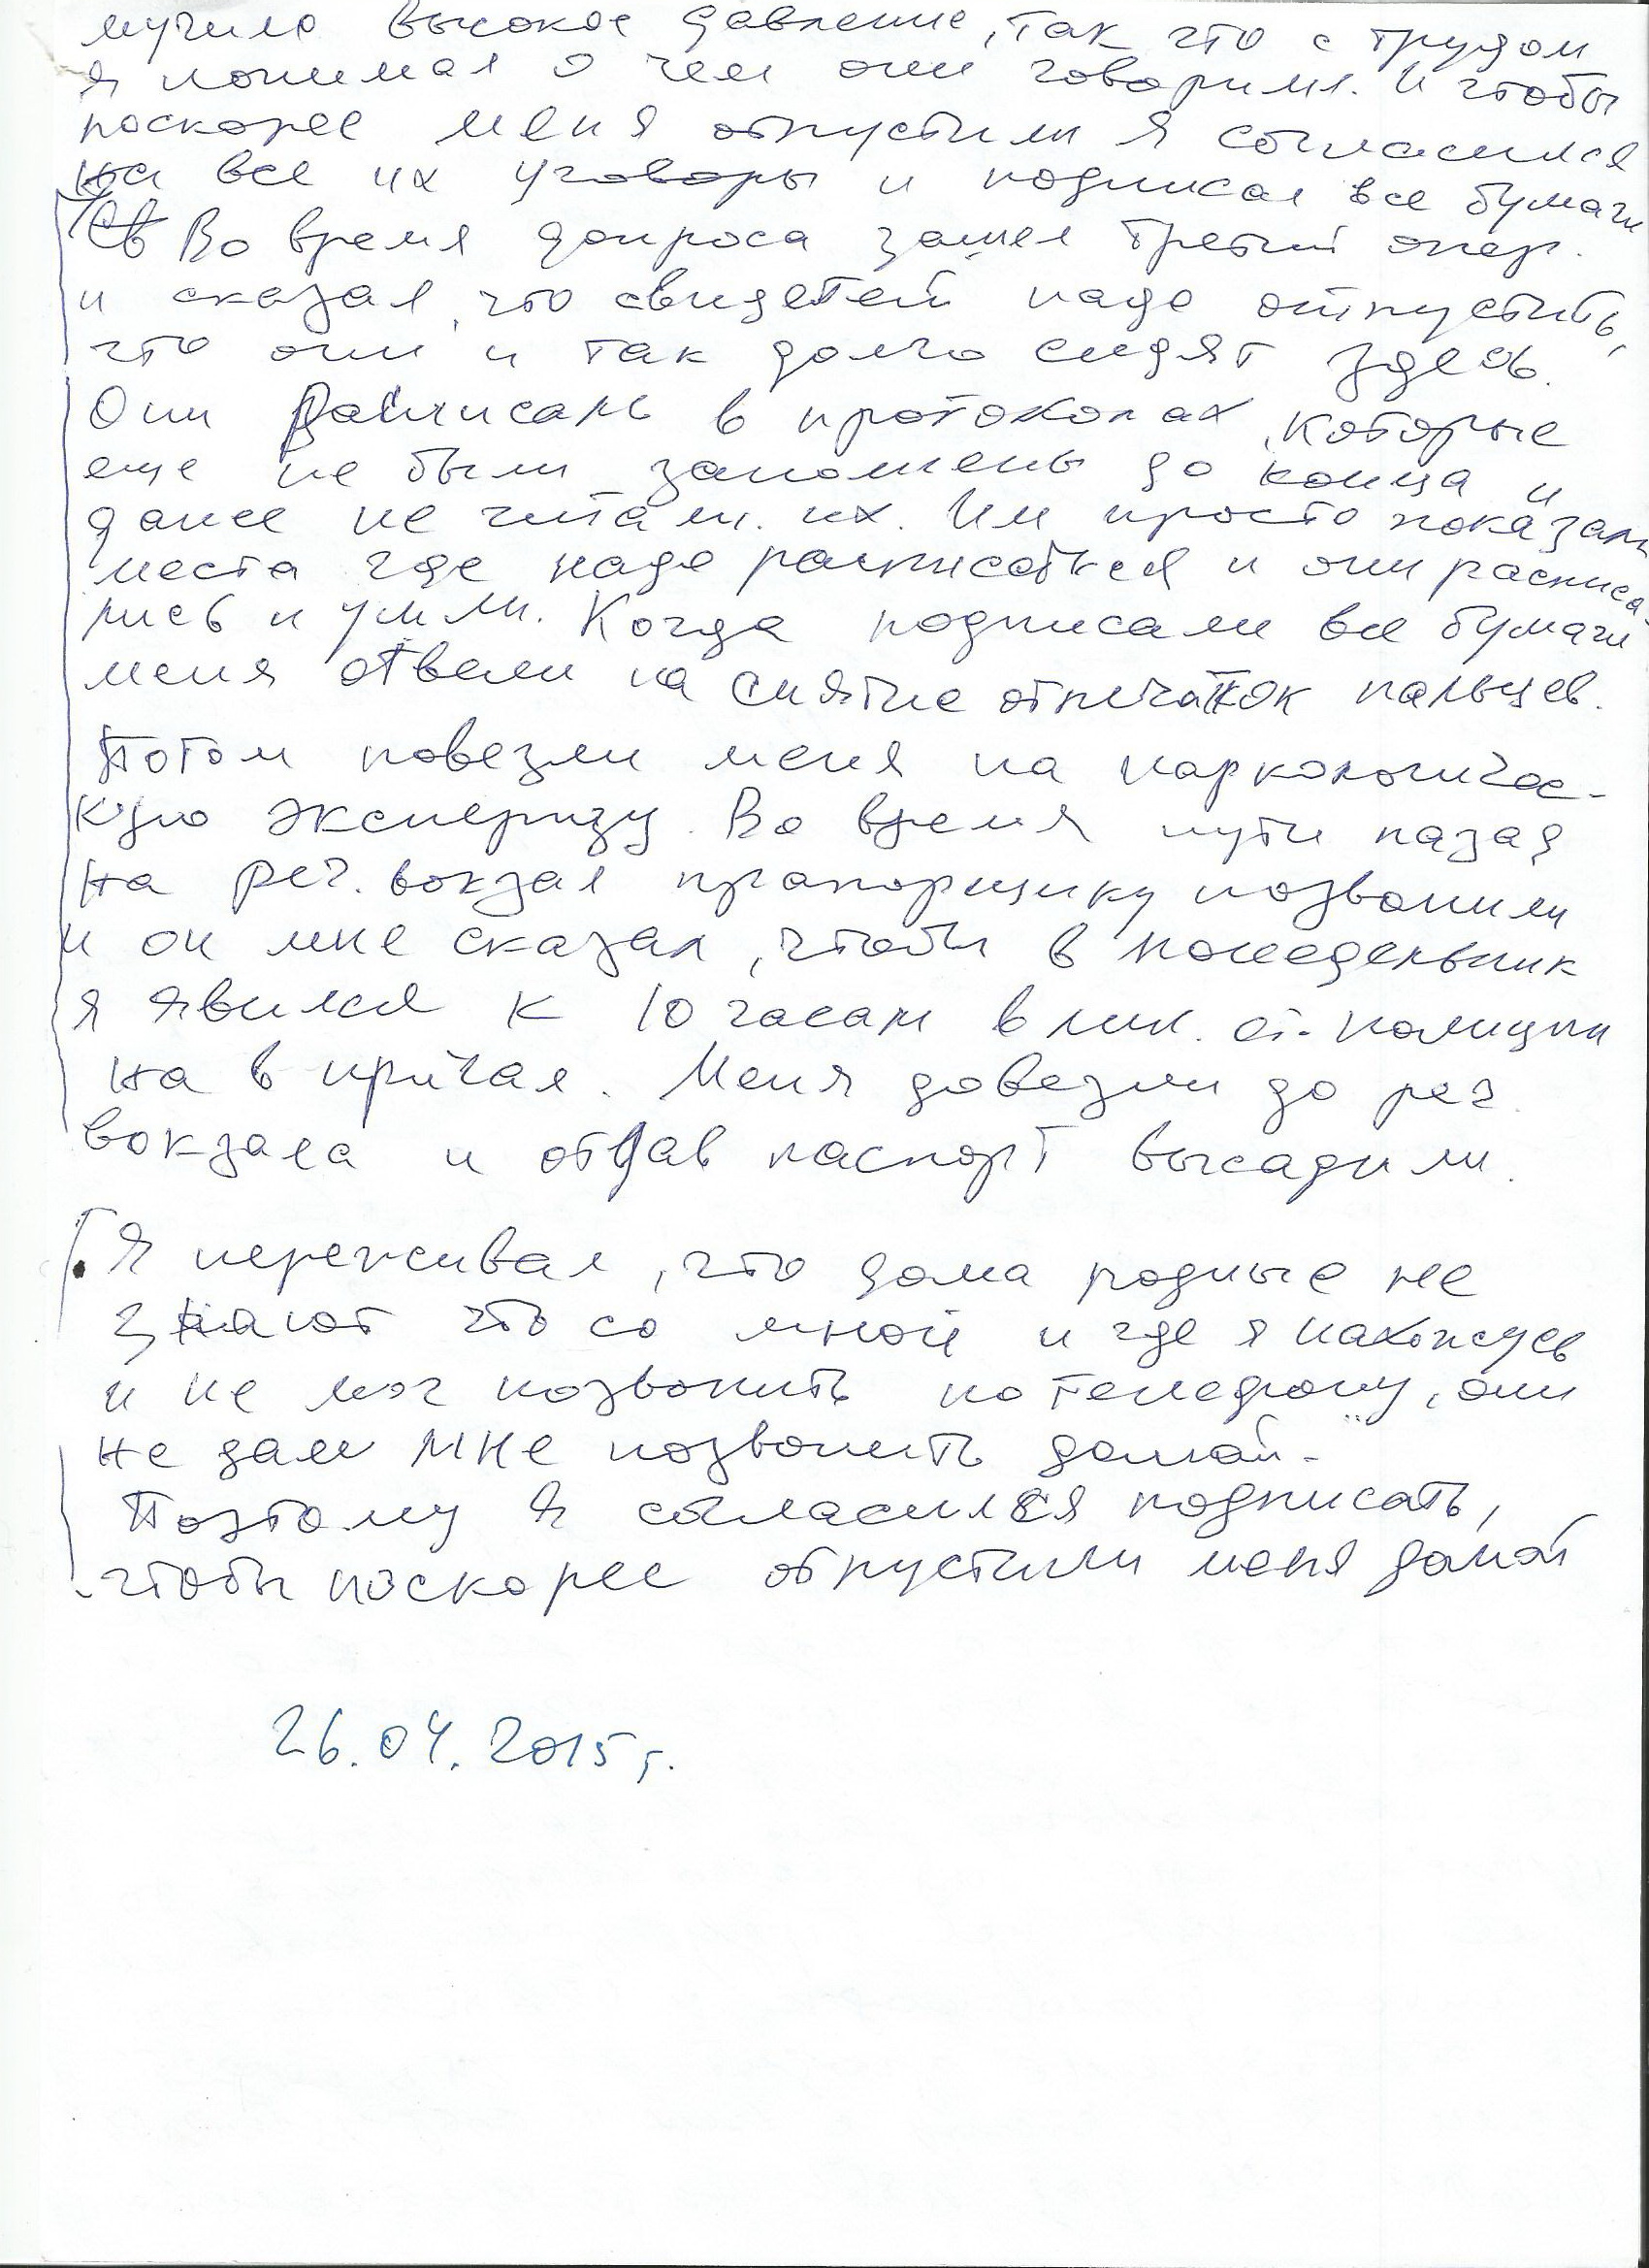 мучило высокое давление, так что с трудом
я понимал о чем они говорили. И чтобы
поскорее меня отпустили я согласился
на все их уговоры и подписал все бумаги
Во время допроса зашел третий опер.
и сказал, что свидетей надо отпустить,
что они и так долго сидят здесь.
Они расписали в протоколах, которые
еще не были заполнены до конца и
даже не читали их. Им просто показали
места где надо расписаться и они расписа-
лись и ушли. Когда подписали все бумаги
меня отвели на снятие отпечаток пальцев.
Потом повезли меня на наркологичес-
кую экспертизу. Во время пути назад
на реч. вокзал прапорщику позвонили
и он мне сказал, чтобы в понедельник
я явился к 10 часам в лин. от. полиции
на в причал. Меня довезли до реч.
вокзала и отдав паспорт высадили.
Я переживал, что дома родные не
знают что со мной и где я нахожусь
и не мог позвонить по телефону, они
не дали мне позвонить домой.
Поэтому я согласился подписать,
чтобы поскорее отпустили меня домой
26.04.2015 г.